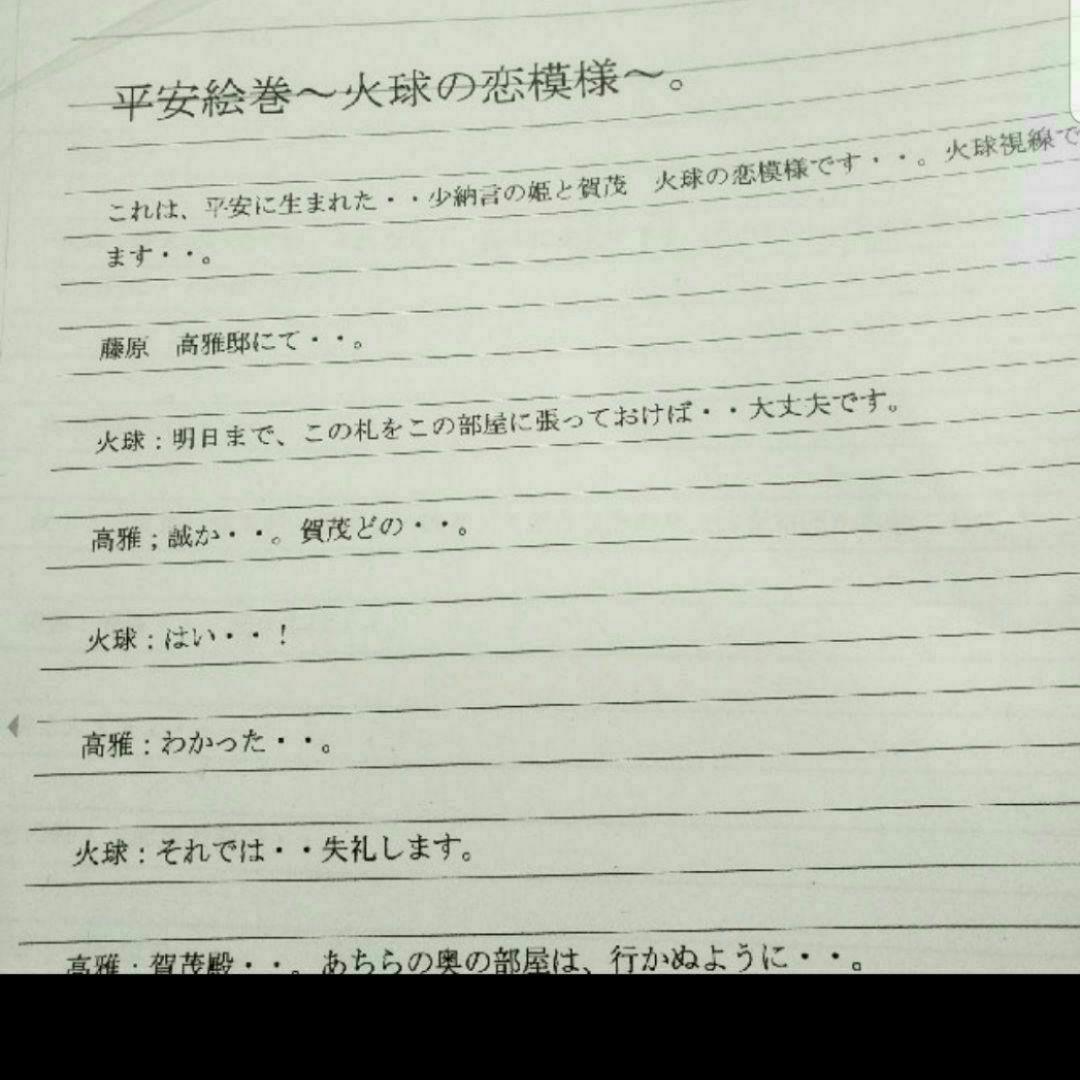 平安絵巻～火球の恋模様～。
これは、平安に生まれた・・少納言の姫と賀茂　火球の恋模様です・・。火球視線で
ます・・。
藤原　高雅邸にて・・。
火球：明日まで、この札をこの部屋に張っておけば・・大丈夫です。
高雅；誠か・・。賀茂どの・・。
火球：はい・・！
高雅：わかった・・。
火球：それでは・・失礼します。
高雅：賀茂殿・・。あちらの奥の部屋は、行かぬように・・。